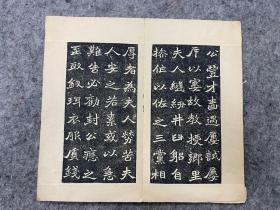 公豐才嗇遇屢試屢
斥以寠故教授鄉里
夫人縫紉井臼躬自
操作以佐之三黨相
厚者為夫人勞苦夫
人安之若素或以急
難告必勸封公應之
至取釵珥衣服質錢